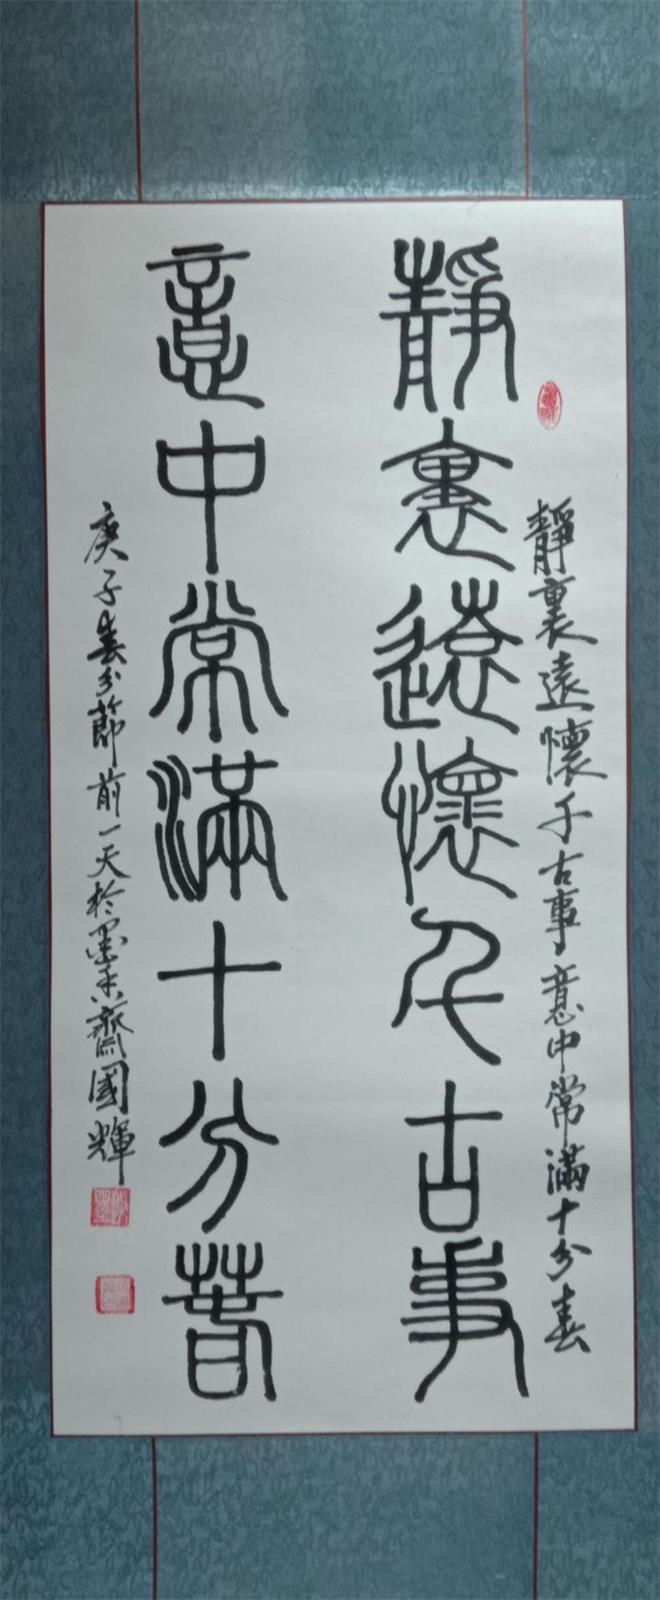 靜裏遠懷千古事意中常滿十分春
靜裏遠懷千古事
意中常滿十分春
庚子春分節前一天於墨香齋國輝